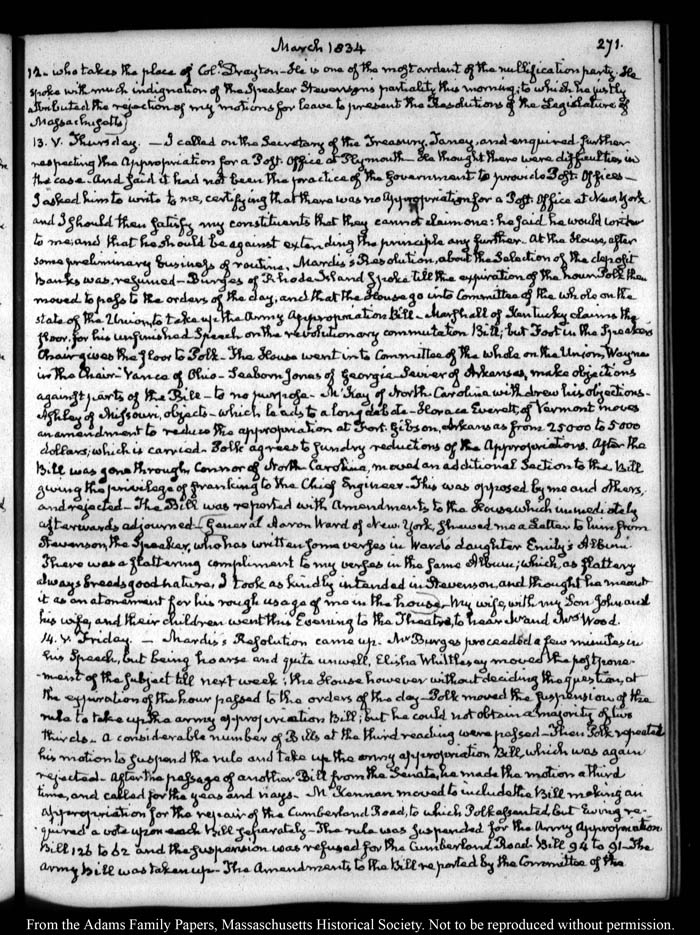 March 1834
271.
12. who takes the place of Col.l Drayton. He is one of the most ardent of the nullification party. He
spoke with much indignation of the Speaker Stevenson's partiality this morning; to which he justly
attributed the rejection of my motions for leave to present the Resolutions of the Legislature of
Massachusetts)
13. V. Thursday. — I called on the Secretary of the Treasury, Taney, and enquired further
respecting the Appropriation for a Post-Office at Plymouth— He thought there were difficulties in
the case— And said it had not been the practice of the Government to provide Post Offices—
I asked him to write to me, certifying that there was no Appropriation for a Post Office at New York
and I should then satisfy my constituents that they cannot claim one: he said he would write
to me; and that he should be against extending the principle any further. At the House, after
some preliminary business of routine, Mardis's Resolution, about the Selection of the deposit
Banks was resumed— Burges of Rhode Island spoke till the expiration of the hour. Polk then
moved to pass to the orders of the day, and that the House go into Committee of the whole on the
state of the Union, to take up the Army Appropriation Bill— Marshall of Kentucky claims the
floor, for his unfinished Speech on the revolutionary commutation Bill; but Foot in the Speaker's
Chair gives the floor to Polk— The House went into Committee of the whole on the Union, Wayne
in the Chair— Vance of Ohio— Seaborn Jones of Georgia— Sevier of Arkansas, make objections
against parts of the Bill— to no purpose— McKay of North Carolina withdrew his objections—
Ashley of Missouri, objects— which leads to a long debate— Horace Everett, of Vermont moves
an amendment to reduce the appropriation at Fort Gibson, Arkansas from 25000 to 5000
dollars; which is carried— Polk agrees to sundry reductions of the Appropriations. After the
Bill was gone through, Connor of North Carolina, moved an additional Section to the Bill
giving the privilege of franking to the Chief Engineer— This was opposed by me and others,
and rejected— The Bill was reported with Amendments to the House which immediately
afterwards adjourned— (General Aaron Ward of New York, shewed me a Letter to him from
Stevenson the Speaker, who has written some verses in Ward's daughter Emily's Album.
There was a flattering compliment to my verses in the same Album; which, as flattery
always breeds good nature, I took as kindly intended in Stevenson, and thought he meant
it as an atonement for his rough usage of me in the house.) My wife, with my Son John and
his wife, and their children went this Evening to the Theatre, to hear Mr and Mrs Wood.
14. V. Friday. — Mardis's Resolution came up. Mr Burges proceeded a few minutes in
his Speech, but being hoarse and quite unwell, Elisha Whittlesey moved the postpone-
ment of the subject till next week; the House however without deciding the question, at
the expiration of the hour passed to the orders of the day— Polk moved the suspension of the
rule to take up the army appropriation Bill; but he could not obtain a majority of two
thirds— A considerable number of Bills at the third reading were passed— Then Polk repeated
his motion to suspend the rule and take up the army appropriation Bill, which was again
rejected— After the passage of another Bill from the Senate, he made the motion a third
time, and called for the yeas and nays— McKennan moved to include the Bill making an
appropriation for the repair of the Cumberland Road, to which Polk assented, but Ewing re-
quired a vote upon each Bill separately— The rule was suspended for the Army Appropriation
Bill 126 to 62 and the suspension was refused for the Cumberland Road Bill 94 to 91— The
Army Bill was taken up— The Amendments to the Bill reported by the Committee of the
From the Adams Family Papers, Massachusetts Historical Society. Not to be reproduced without permission.